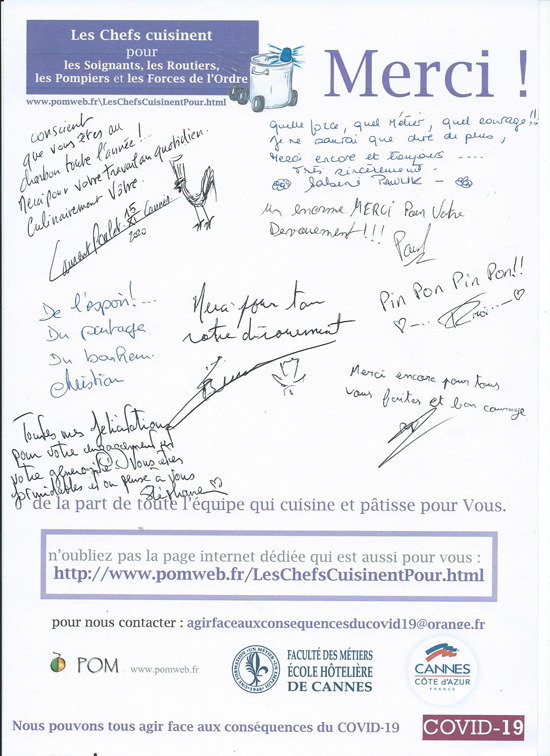 Les Chefs cuisinent
pour
les Soignants, les Routiers,
les Pompiers et les Forces de l'Ordre
www.pomweb.fr\LesChefsCuisinentPour.html
Merci !
conscient
que vous êtes au
charbon toute l'année !...
Merci pour votre travail au quotidien.
Culinairement Vôtre.
Laurent
15
2020
Quelle force, quel Métier, quel courage !!
Je ne saurai que dire de plus,
Merci encore et toujours ....
Très sincèrement.
un enorme MERCI Pour Votre
Devouement !!!
Paul
De l'espoir !...
Du partage
Du bonheur.
Christian
Merci pour tout
votre dévouement
Pin Pon Pin Pon !!
Merci encore pour tous
vous faites et bon courage
Toutes mes félicitations
pour votre engagement et
votre générosité ! Vous êtes
formidables et on pense à vous
Stéphane
de la part de toute l'équipe qui cuisine et pâtisse pour Vous.
n'oubliez pas la page internet dédiée qui est aussi pour vous :
http://www.pomweb.fr/LesChefsCuisinentPour.html
pour nous contacter : agirfaceauxconsequencesducovid19@orange.fr
POM www.pomweb.fr
FACULTÉ DES MÉTIERS
ÉCOLE HÔTELIÈRE
DE CANNES
CANNES
CÔTE d'AZUR
FRANCE
Nous pouvons tous agir face aux conséquences du COVID-19
COVID-19